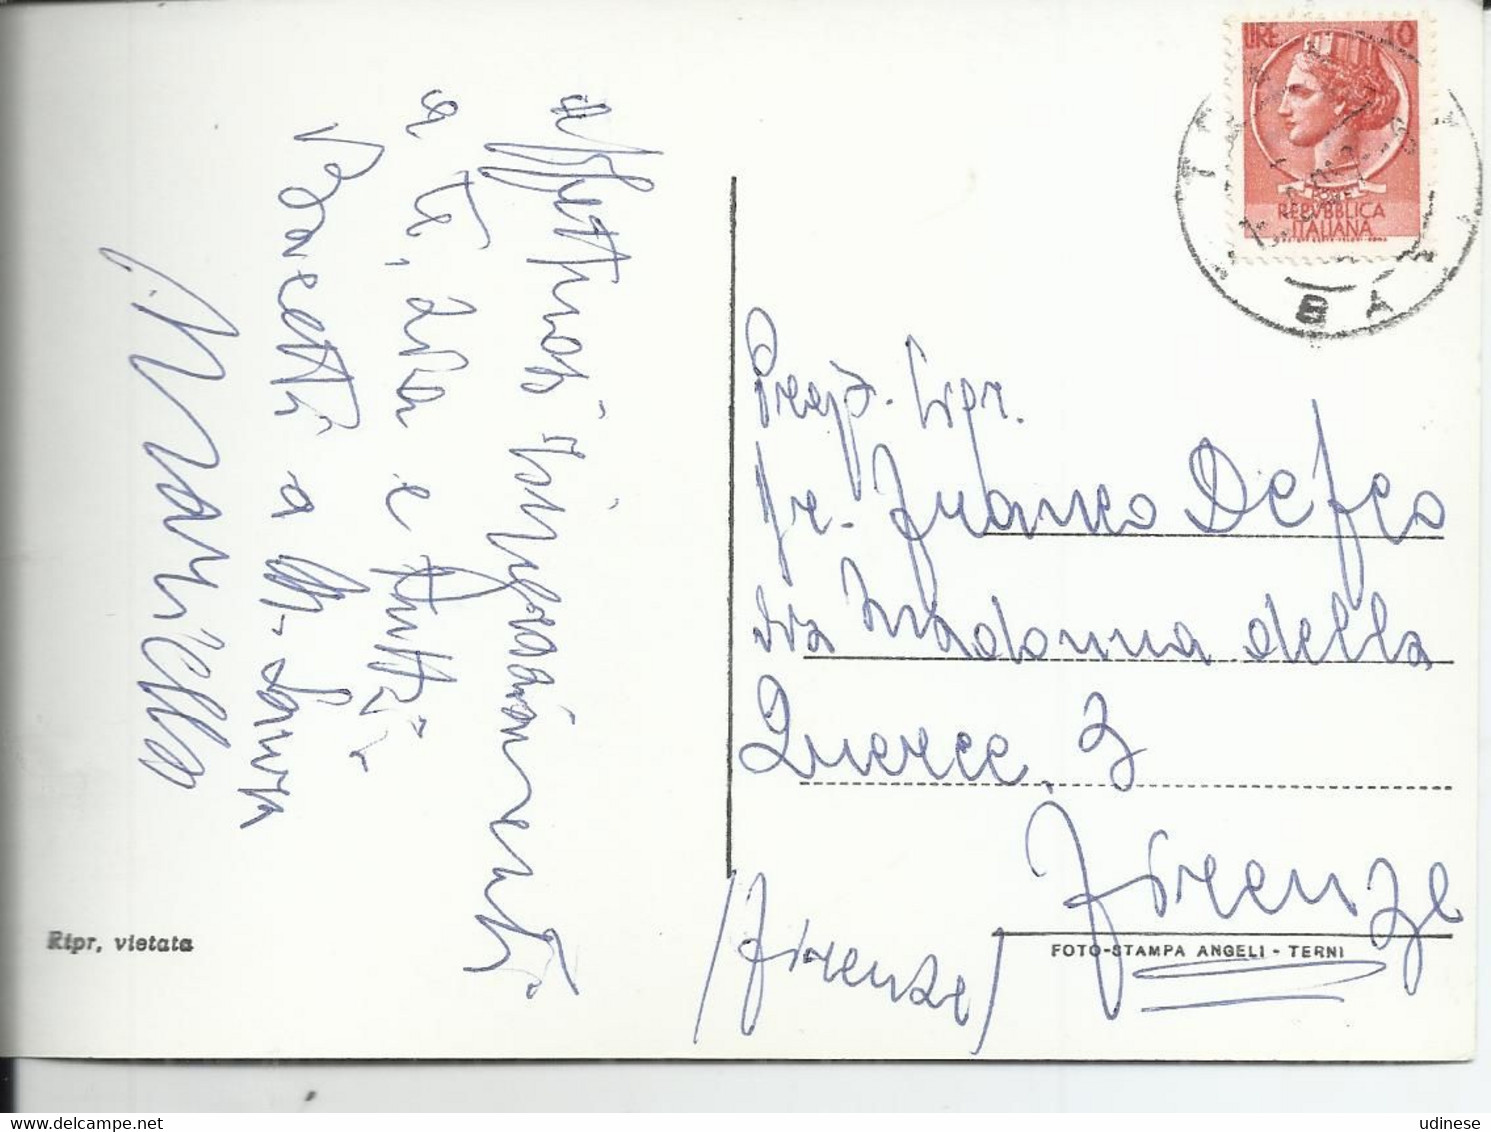 Affettuosi ringraziamenti
a te, Lia e tutti.
Bacetti a M. Laura
Mariella
LIRE 10
REPVBBLICA
ITALIANA
BA
Sigr.
Franco Defeo
via Madonna della
Querce, 3
Firenze
(Firenze)
Ripr, vietata
FOTO-STAMPA ANGELI - TERNI
www.delcampe.net
udinese